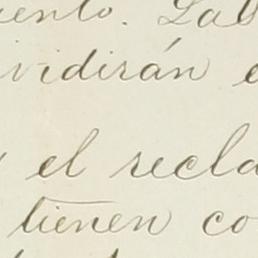 iento. Las
vidirán e
y el recla
tienen co